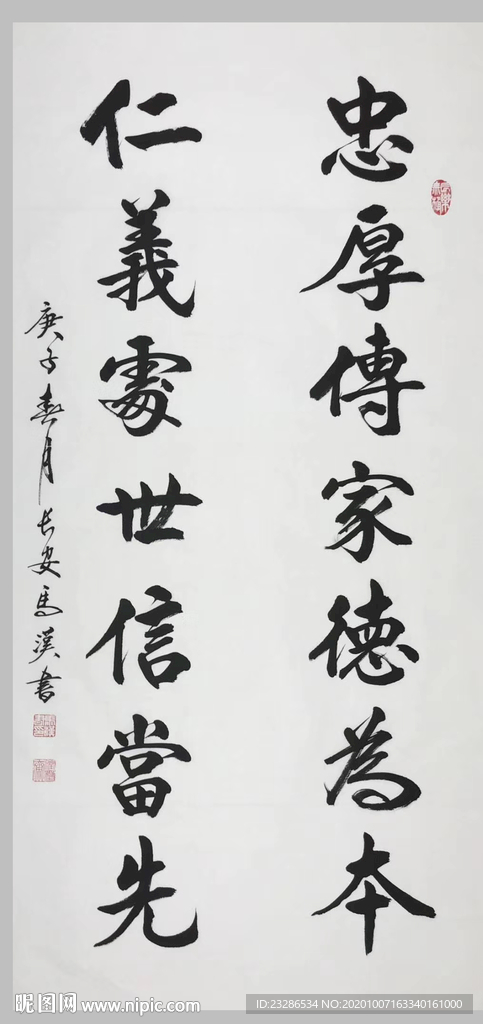 忠厚傳家德為本
仁義處世信當先
庚子春月長安馬漢書
昵图网 www.nipic.com
ID:23286534 NO:20201007163340161000